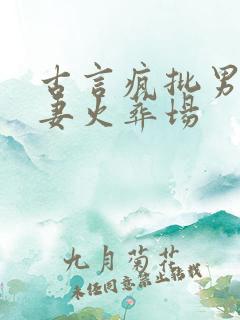 古言疯批男
妻火葬场
九月菊花
未经同意禁止转载